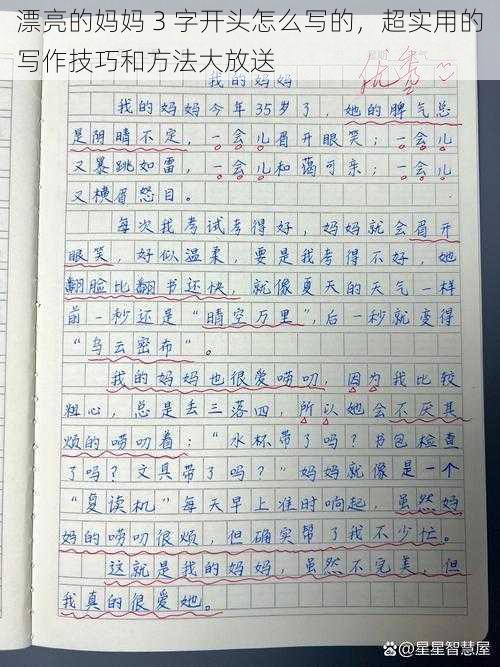 漂亮的妈妈 3 字开头怎么写的，超实用的
写作技巧和方法大放送
我的妈妈
优秀
我的妈妈今年35岁了，她的脾气总
是阴晴不定，一会儿眉开眼笑；一会儿
又暴跳如雷，一会儿和蔼可亲；一会儿
又横眉怒目。
每次我考试考得好，妈妈就会眉开
眼笑，好似温柔，要是我考得不好，她
翻脸比翻书还快，就像夏天的天气一样
前一秒还是“晴空万里”，后一秒就变得
“乌云密布”。
我的妈妈也很爱唠叨，因为我比较
粗心，总是丢三落四，所以她会不厌其
烦的唠叨着：“水杯带了吗？书包检查
了吗？文具带了吗？”妈妈就像是一个
“复读机”每天早上准时响起，虽然妈
妈的唠叨很烦，但确实帮了我不少忙。
这就是我的妈妈，虽然不完美，但
我真的很爱她。
星星智慧屋